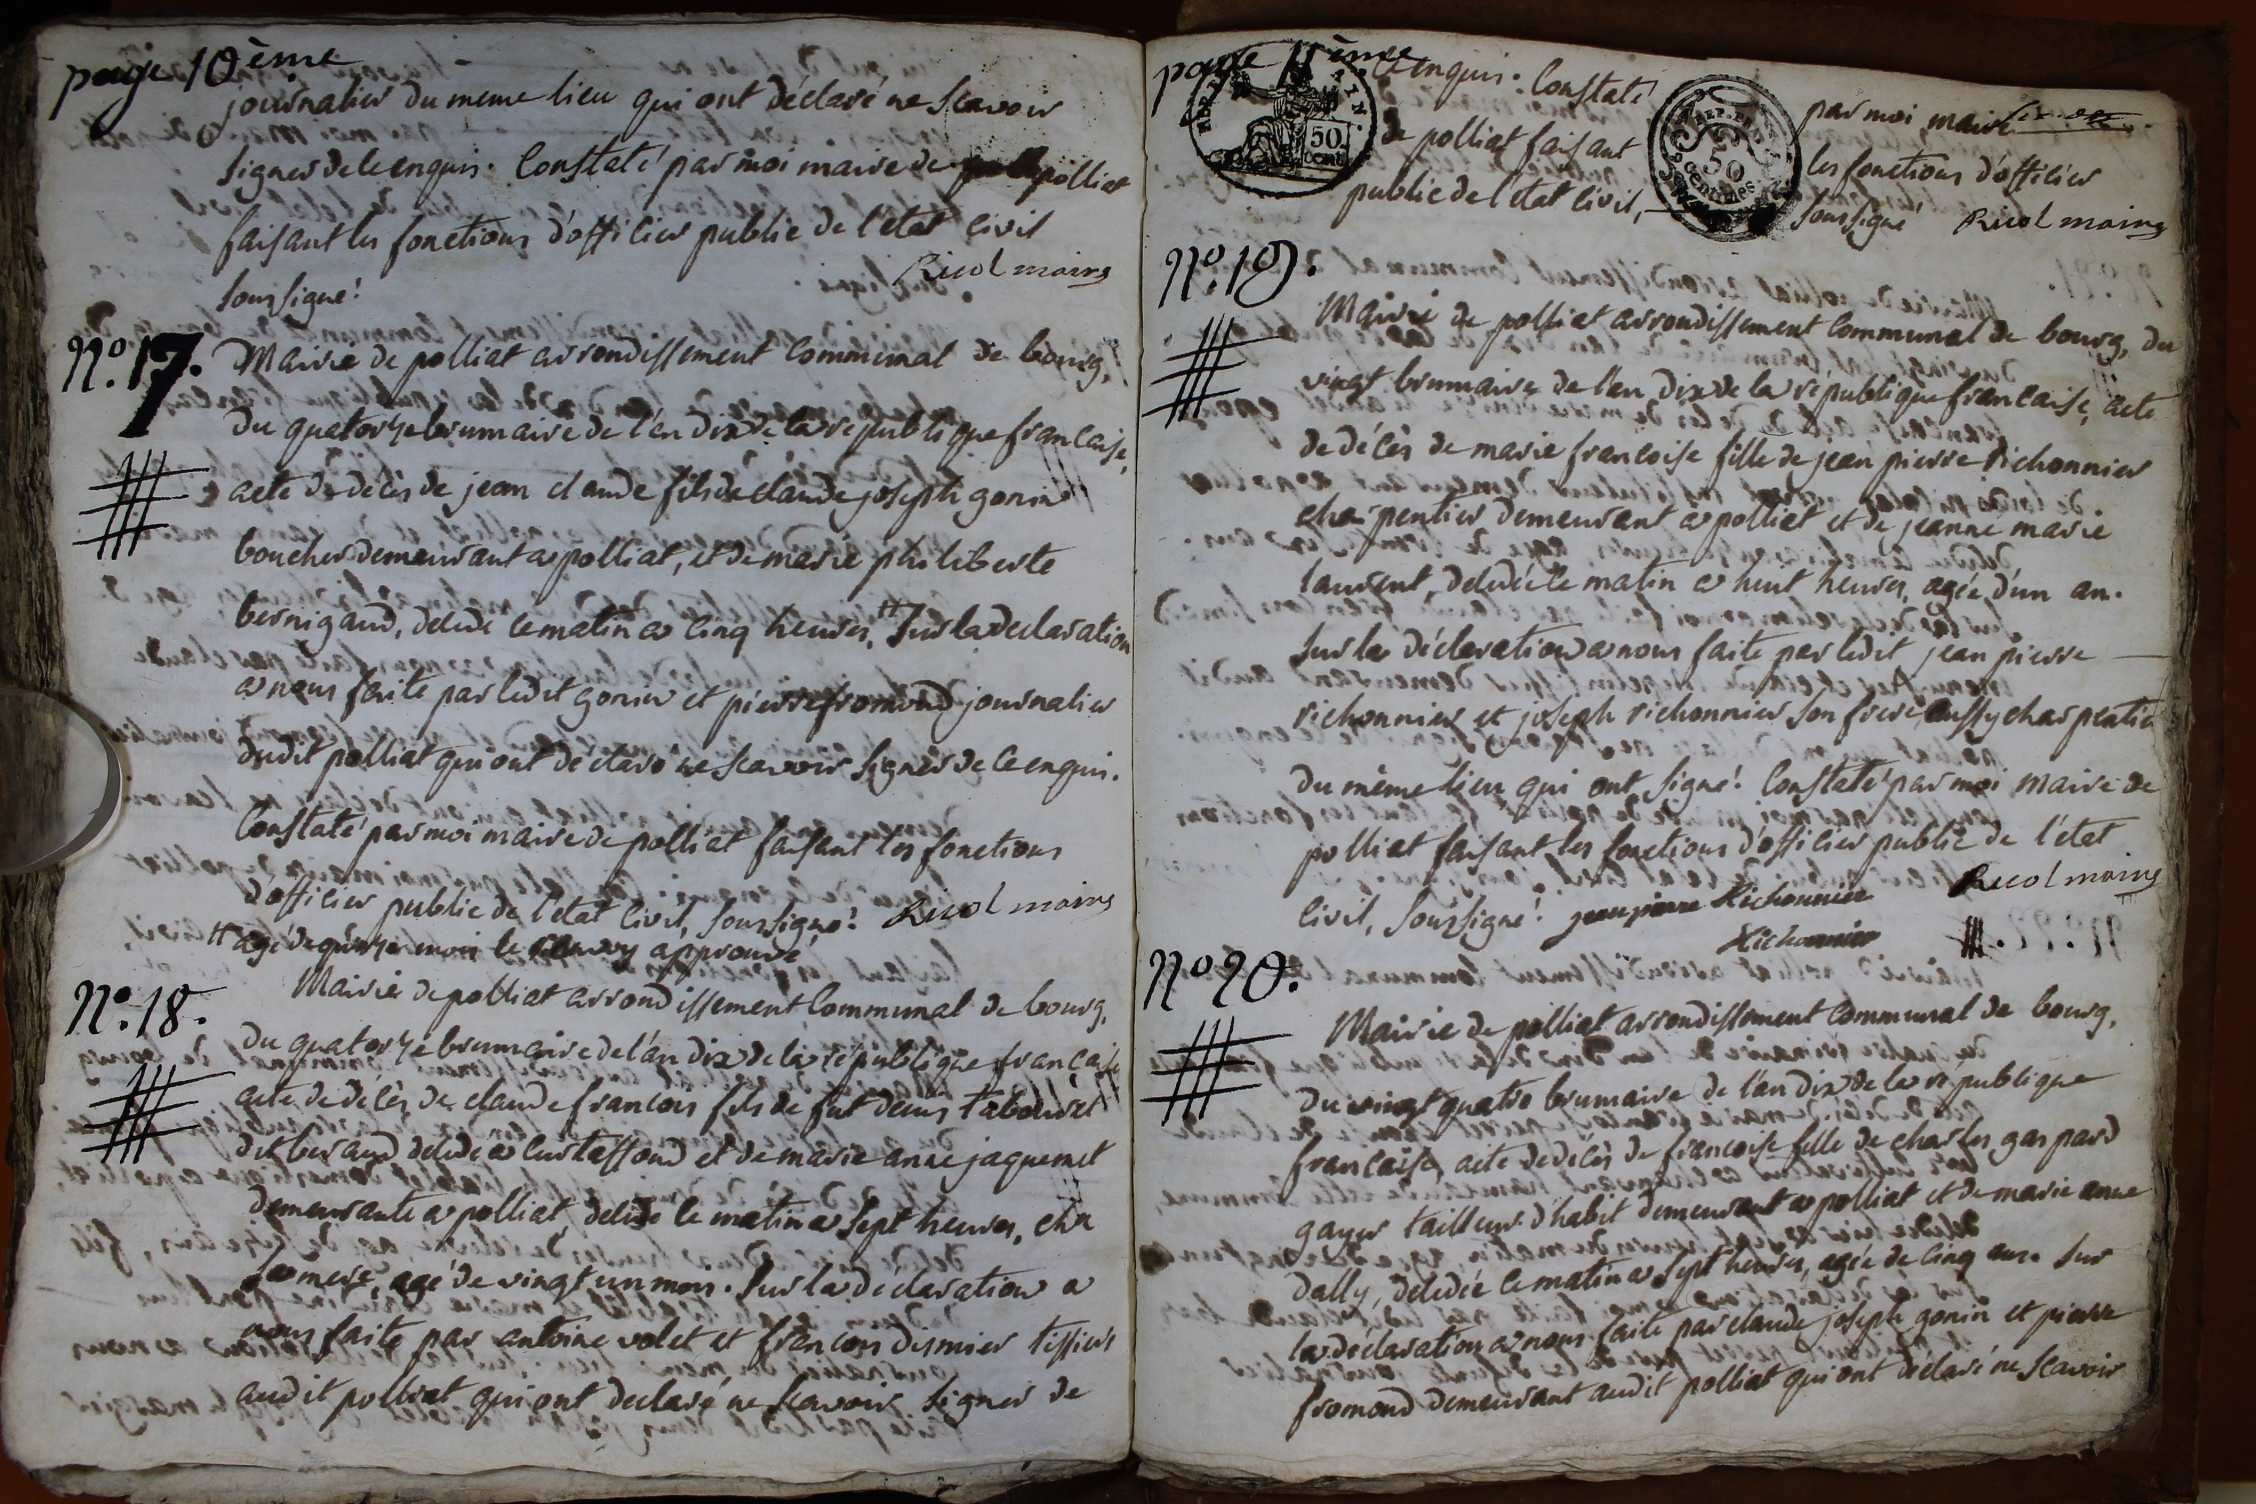 page 10ème
journalier du meme lieu qui ont déclaré ne scavoir
signer de ce enquis. Constaté par moi maire de polliat
faisant les fonctions d'officier public de l'etat civil
soussigné! Ricol maire
N.o 17. Mairie de polliat arrondissement Communal de bourg,
du quatorze brumaire de l'an dix de la republique francaise,
acte de decès de jean claude fils de claude joseph gonin
boucher demeurant a polliat, et de marie philiberte
bernigaud, décédé ce matin a cinq heures, # Sur la declaration
a nous faite par ledit gonin et pierre fromond journalier
dudit polliat qui ont déclaré ne scavoir signer de ce enquis.
Constaté par moi maire de polliat faisant les fonctions
d'officier public de l'etat civil, soussigné! Ricol maire
# agé de quinze mois le renvoy approuvé
N.o 18. Mairie de polliat arrondissement Communal de bourg,
du quatorze brumaire de l'an dix de la republique française
acte de décès de claude francois fils de fut denis tabouret
dit beraud décédé a Curtaffond et de marie anne jaquemet
demeurante a polliat, décédé ce matin a sept heures, chez
sa mere, agé de vingt un mois. Sur la déclaration a
nous faite par antoine volet et francois desmier tissiers
audit polliat qui ont declaré ne scavoir signer de
page 11ème
ce enquis. Constaté par moi maire
de polliat faisant les fonctions d'officier
public de l'etat civil, soussigné Ricol maire
50. cent.
REP. FRA.
50
centimes
N.o 19.
Mairie de polliat arrondissement Communal de bourg, du
vingt brumaire de l'an dix de la république francaise, acte
de décès de marie francoise fille de jean pierre richonnier
charpentier demeurant a polliat et de jeanne marie
laurent, décédée ce matin a huit heures, agée d'un an.
Sur la déclaration a nous faite par ledit jean pierre
richonnier et joseph richonnier son frere, aussy charpentier
du même lieu qui ont signé! Constaté par moi maire de
polliat faisant les fonctions d'officier public de l'état
civil, soussigné! jean pierre Richonnier Ricol maire
Richonnier
N.o 20.
Mairie de polliat arrondissement Communal de bourg,
du vingt quatre brumaire de l'an dix de la république
francaise, acte de décès de francoise fille de charles gaspard
gayer tailleur d'habit demeurant a polliat et de marie anne
dally, décédée ce matin a sept heures, agée de cinq ans. Sur
la déclaration a nous faite par claude joseph gonin et pierre
fromond demeurant audit polliat qui ont déclaré ne scavoir